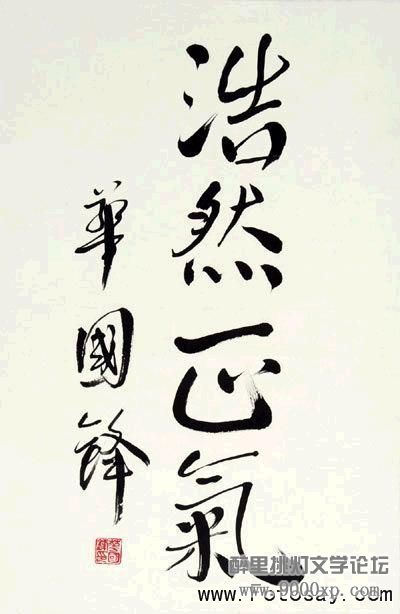 浩然正氣
華國鋒
醉里挑灯文学论坛
www.9000xp.com
www.Fotosay.com